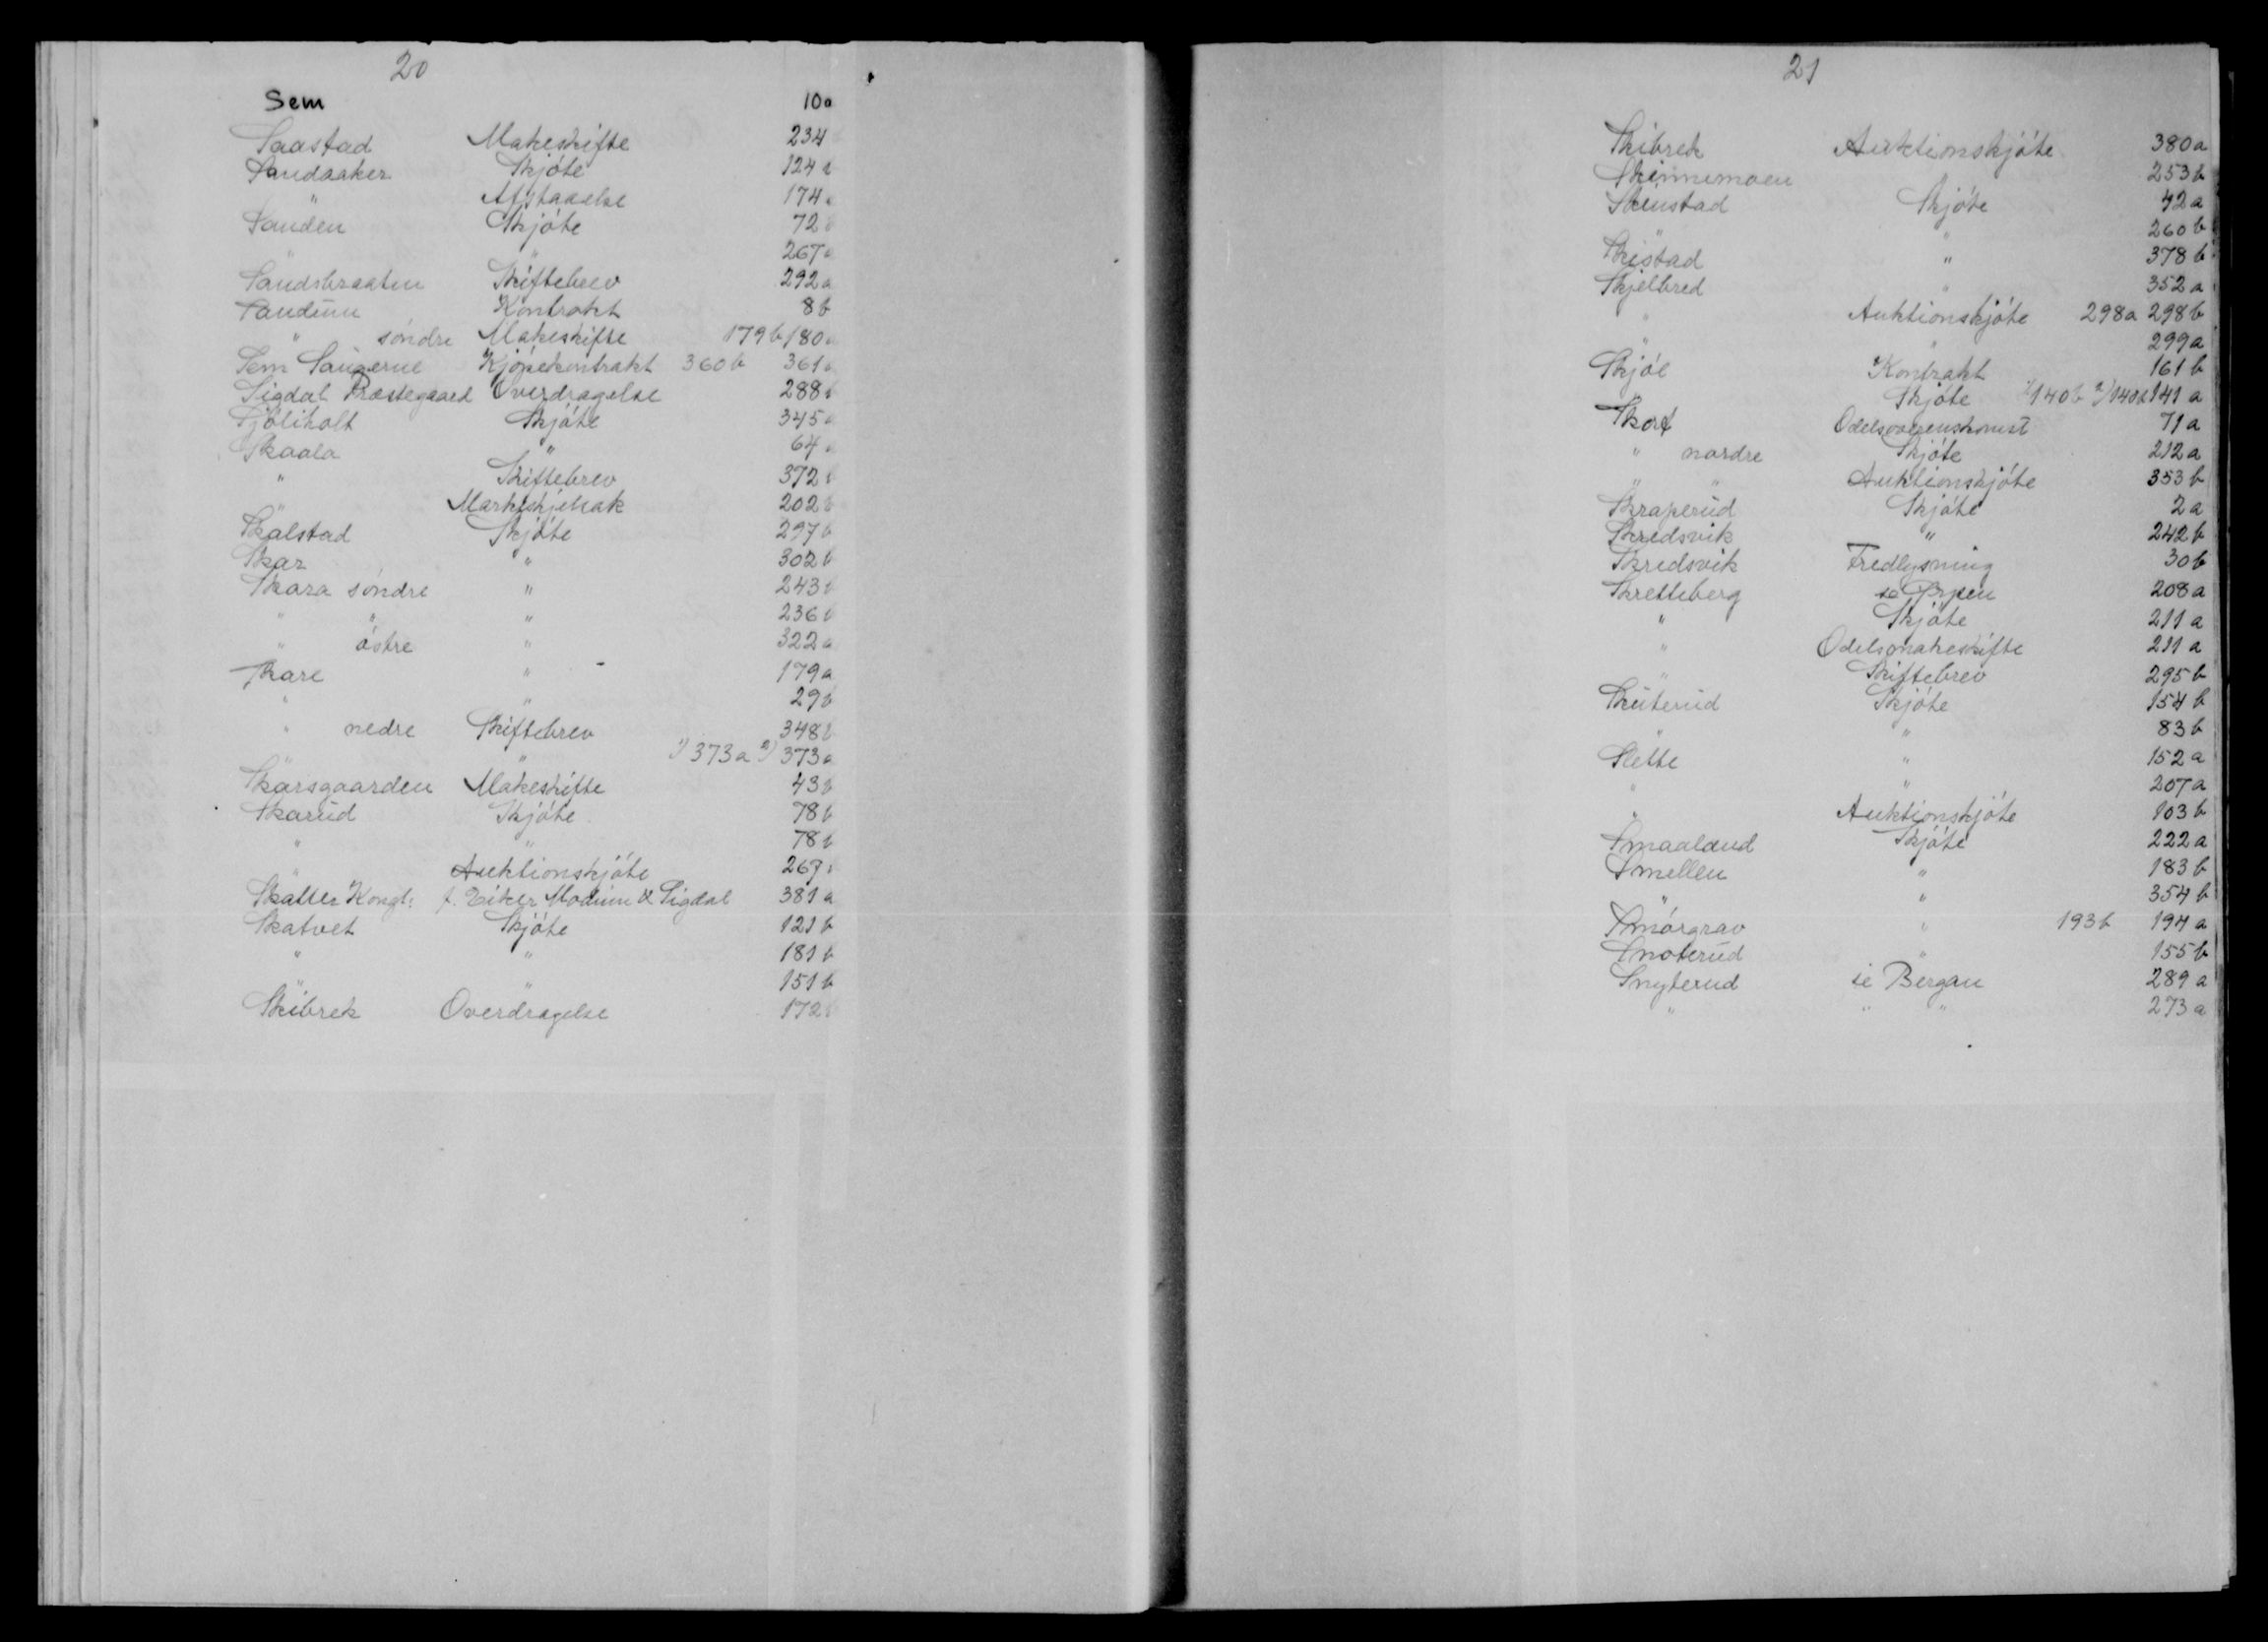 20
Sem 10a
Saastad Makeskifte 234
Sandaaker Skjóte 124
" Afstaaelse 174
Sanden Skjóte 72
" " 267
Sandsbraaten Skiftebrev 292a
Sandum Kontrakt 8b
" söndre Makeskifte 179b 180
Sem Saugerne Kjöpekontrakt 360b 361
Sigdal Præstegaard Overdragelse 288
Sjöliholt Skjöte 345
Skaala " 64
" Skiftebrev 372
" Markeskjelsak 202
Skalstad Skjöte 297b
Skar " 302b
Skara söndre " 243
" " " 236
" östre " 322a
Skare " 179a
" " 29b
" nedre Skiftebrev 348b
" 1) 373a 2) 373a
Skarsgaarden Makeskifte 43b
Skarud Skjöte 78b
" " 78b
" Auktionskjöte 267
Skatter Kongl: f. Eiker Modum & Sigdal 381a
Skatvet Skjöte 121b
" " 181b
" " 151b
Skibrek Overdragelse 172
21
Skibrek Auktionskjöte 380a
Skinnemoen 253b
Skinstad Skjöte 42a
" " 260b
Skistad " 378b
Skjelbred " 352a
" Auktionskjöte 298a 298b
" " 299a
Skjöl Kontrakt 161b
Skjöte 1) 140b 2) 140b 141a
Skort Odelsoverenskomst 71a
" nordre Skjöte 212a
" " Auktionskjöte 353b
Skraperud Skjöte 2a
Skredsvik " 242b
Skredsvik Fredlysning 30b
Skretteberg se Byen 208a
" Skjöte 211a
" Odelsmakeskifte 211a
" Skiftebrev 295b
Skuterud Skjöte 154b
" " 83b
Slette " 152a
" " 207a
" Auktionskjöte 103b
Smaaland Skjöte 222a
Smellen " 183b
" " 354b
Smörgrav " 193b 194a
Snoterud " 155b
Snyterud se Bergan 289a
" " " 273a